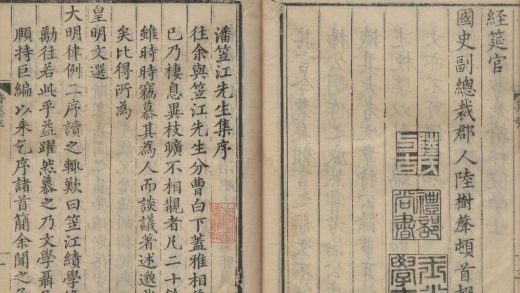 經筵官
國史副總裁郡人陸樹聲頓首
禮部尚書
潘笠江先生集序
往余與笠江先生分曹白下蓋雅相
巳乃棲息異枝曠不相覿者凡二十
維時時竊慕其為人而談議著述邈
矣比得所為
皇明文選
大明律例二序讀之輒歎曰笠江績學
勵往若此乎益躍然慕之乃文學聶
頤持巨編以来乞序諸首簡余聞之